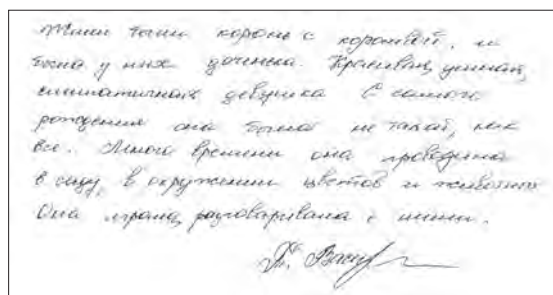 Жили были король с королевой, и
была у них дочинка. Красивая, умная,
симпатичная девушка. С самого
рождения она была не такой, как
все. Много времени она проводила
в саду, в окружении цветов и животных
Она играла, разговаривала с ними.